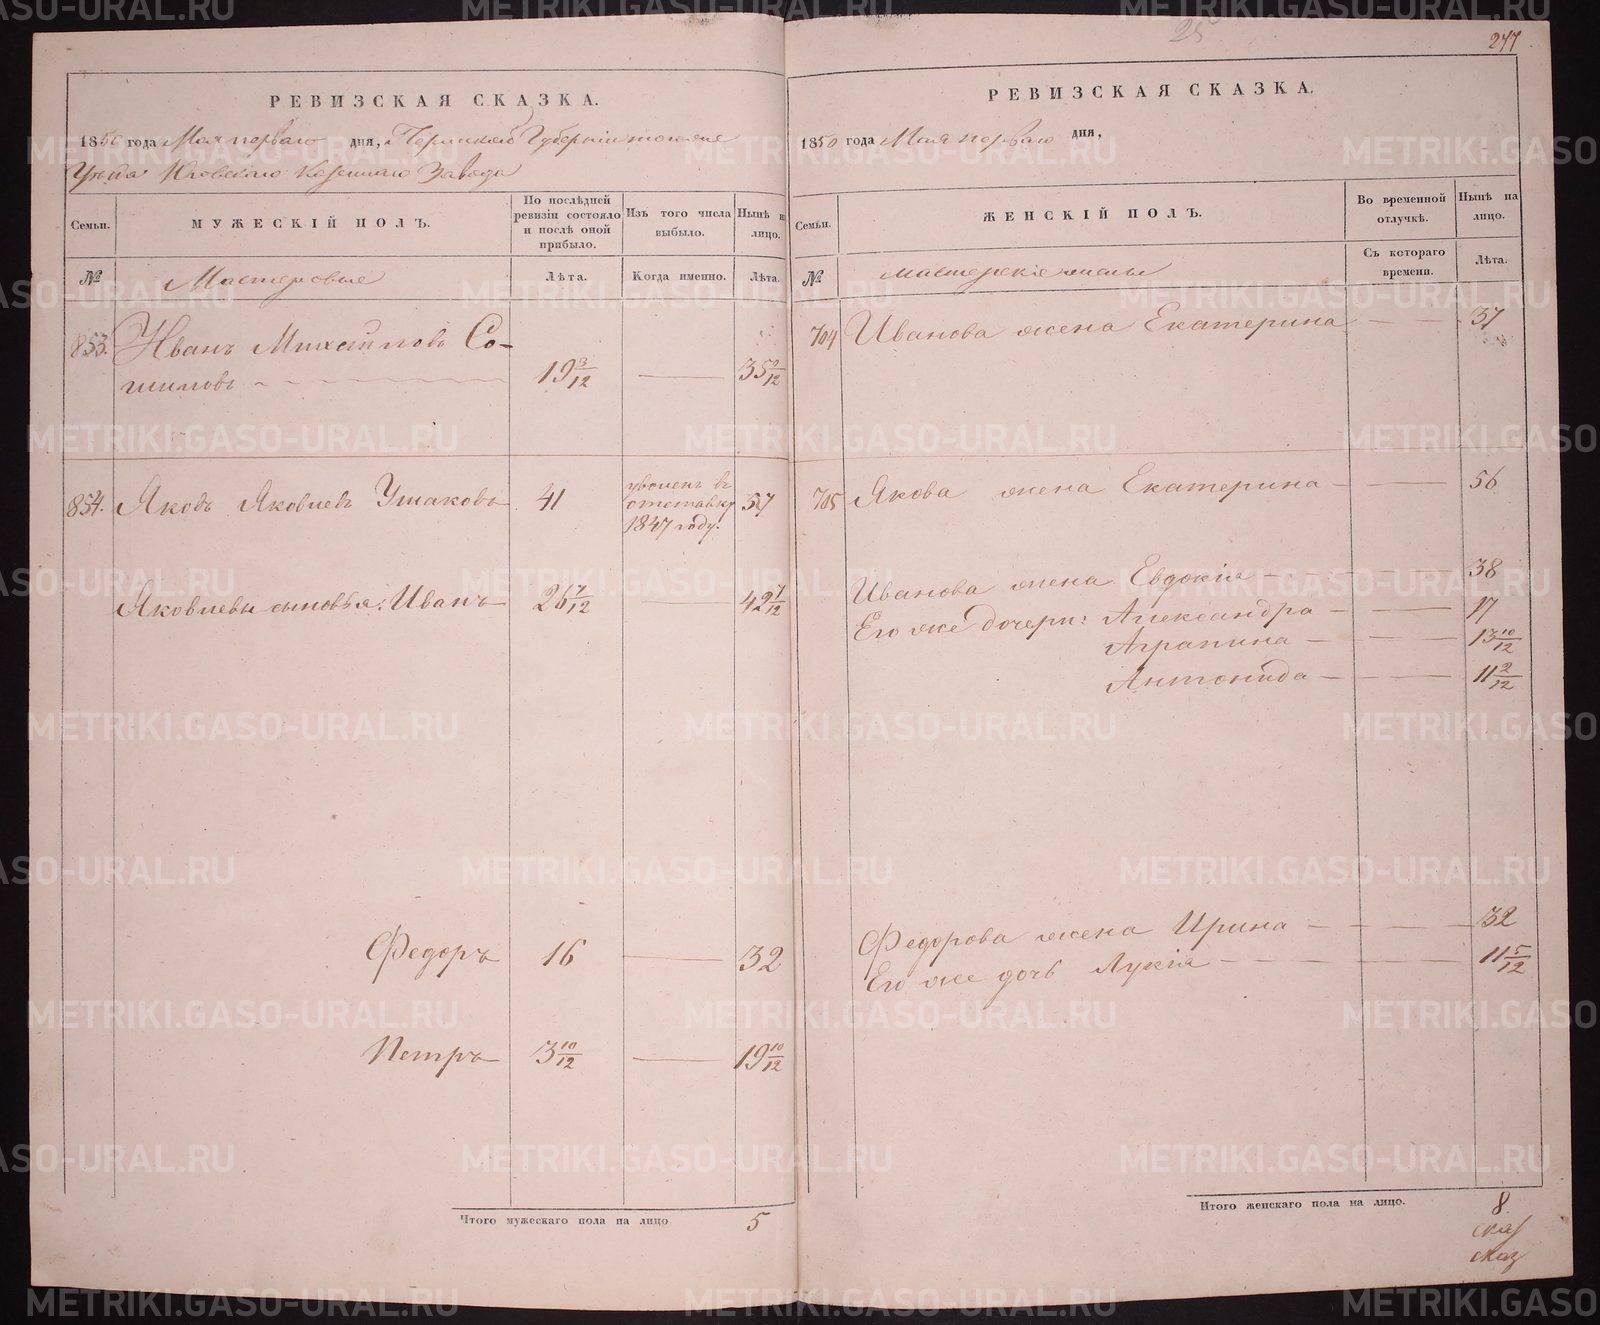 25
277
РЕВИЗСКАЯ СКАЗКА.
1850 года Мая перваго дня, Пермской Губерніи
Уѣзда Юговскаго Казеннаго Завода
Семьи.
МУЖЕСКІЙ ПОЛЪ.
По послѣдней ревизіи состояло и послѣ оной прибыло.
Изъ того числа выбыло.
Нынѣ на лицо.
№
Мастеровые
Лѣта.
Когда именно.
Лѣта.
853. Иванъ Михайловъ Со-
шиловъ 19 3/12 — 35 /12
854. Яковъ Яковлевъ Ушаковъ 41 уволенъ въ отставку 1847 году. 57
Яковлевы сыновья: Иванъ 26 7/12 — 42 7/12
Федоръ 16 — 32
Петръ 3 10/12 — 19 10/12
Итого мужескаго пола на лицо 5
РЕВИЗСКАЯ СКАЗКА.
1850 года Мая перваго дня,
Семьи.
ЖЕНСКІЙ ПОЛЪ.
Во временной отлучкѣ.
Нынѣ на лицо.
№
Съ котораго времени.
Лѣта.
704 Иванова жена Екатерина — 37
705 Якова жена Екатерина — 56
Иванова жена Евдокія — 38
Его же дочери: Александра — 17
Аграпина — 13 10/12
Антонида — 11 2/12
Федорова жена Ирина — 32
Его же дочь Лукія — 11 5/12
Итого женскаго пола на лицо. 8
METRIKI.GASO-URAL.RU